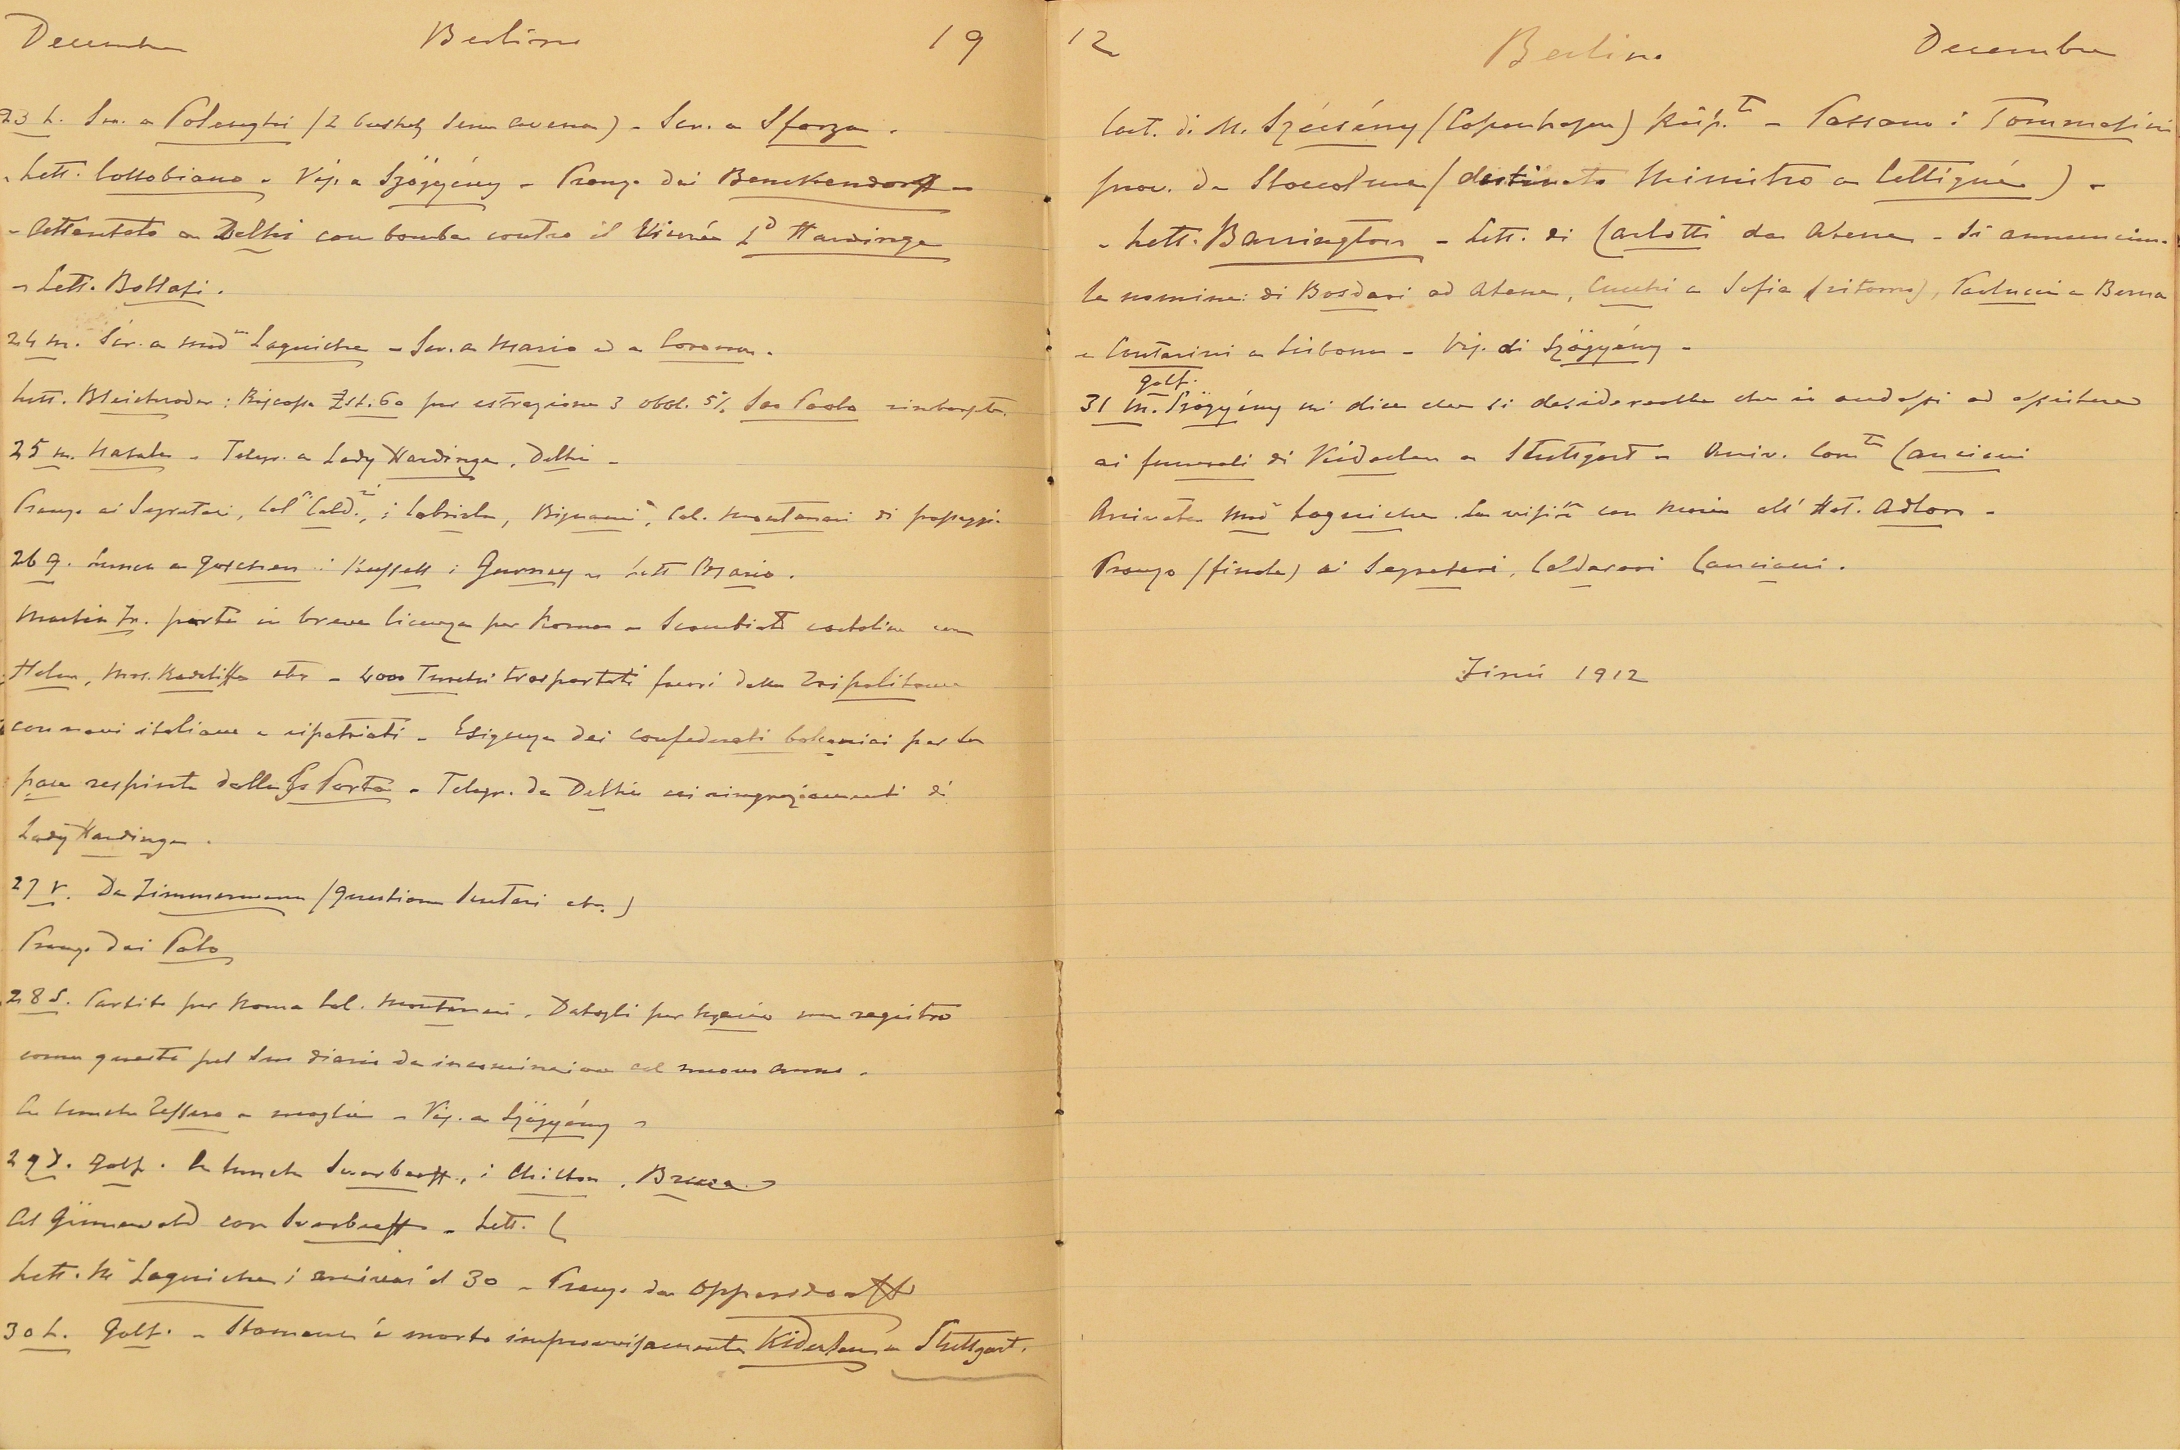 Decembre Berlino 19
23 L. Scr. a Polenghi (2 bushels seme avena) - Scr. a Sforza.
- Lett. Collobiano - Vis. a Szögyény - Pranzo dai Benckendorff -
- Attentato a Delhi con bomba contro il Vicerè Ld Hardinge
- Lett. Bollati.
24 m. Scr. a Mad Laguiche - Scr. a Mario ed a
Lett. Bleichroder: Ricassa Lst. 60 per estrazione 3 obbl. 5% San Paolo
25 m. Natale - Telegr. a Lady Hardinge, Delhi -
Pranzo ai Segretari, Col Cald., i Labriola, Bignami, Col. Montanari di passaggio.
26 g. Lunch a Goschen i Russell i Gurney - Lett Mario.
Martin Fr. parte in breve licenza per Roma - Scambiati cartoline con
Helen, Mrs. Radcliffe etc - 4000 Turchi trasportati fuori della Tripolitania
con navi italiane e ripatriati - Esigenze dei confederati balcanici per la
pace respinte dalla Porta - Telegr. da Delhi coi ringraziamenti di
Lady Hardinge.
27 v. Da Zimmermann (questione Scutari etc.)
Pranzo dai Polo
28 S. Partito per Roma Col. Montanari. Datogli per Mario un registro
come questo pel suo diario da incominciare col nuovo anno.
A lunch Tessera e moglie - Vis. a Szögyény -
29 D. Golf. A lunch Swerbeeff, i Chilton,
Al Grünewald con Swerbeeff - Lett. C
Lett. M Laguiche: arriverà il 30 - Pranzo da Oppersdorff
30 L. Golf. - Stamane è morto improvvisamente Kiderlen a Stuttgart.
12 Berlino Decembre
Cart. di M. Szécsény (Copenhagen) - Passano i Tommasini
prov. da Stoccolma (destinato Ministro a Cettigné) -
- Lett. Barrington - Lett. di Carlotti da Atene - Si annunciano
le nomine: di Bosdari ad Atene, Cucchi a Sofia (ritorno), Paulucci a Berna
e Contarini a Lisbona - Vis. di Szögyény -
golf.
31 m. Szögyény mi dice che si desidererebbe che io andassi ad assistere
ai funerali di Kiderlen a Stuttgart - Arriv. Com Canciani
Arrivata Mad Laguiche. La visito con Maria all' Hot. Adlon -
Pranzo (finale) ai Segretari, Calderari Canciani.
Finis 1912